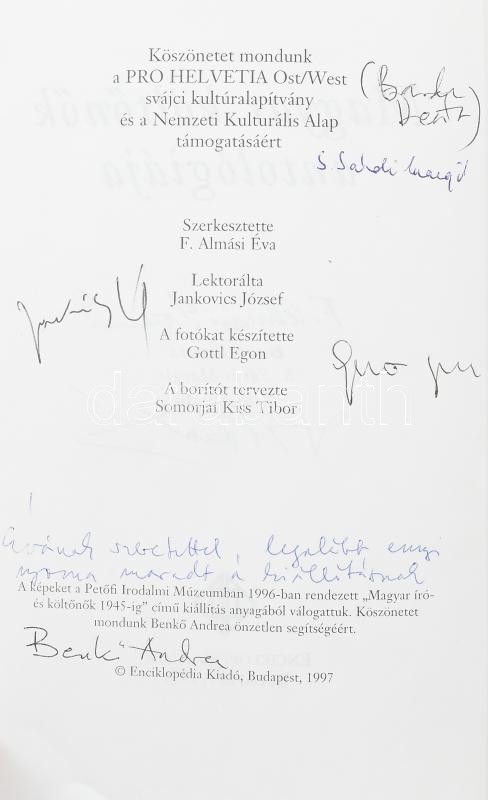 Köszönetet mondunk
a PRO HELVETIA Ost/West
svájci kultúralapítvány
és a Nemzeti Kulturális Alap
támogatásáért
S. Sárdi Margit
Szerkesztette
F. Almási Éva
Lektorálta
Jankovics József
A fotókat készítette
Gottl Egon
A borítót tervezte
Somorjai Kiss Tibor
darabanth
Évának szeretettel, legalább ennyi
nyoma maradt a kiállításnak
A képeket a Petőfi Irodalmi Múzeumban 1996-ban rendezett „Magyar író-
és költőnők 1945-ig” című kiállítás anyagából válogattuk. Köszönetet
mondunk Benkő Andrea önzetlen segítségéért.
Benkő Andrea
© Enciklopédia Kiadó, Budapest, 1997